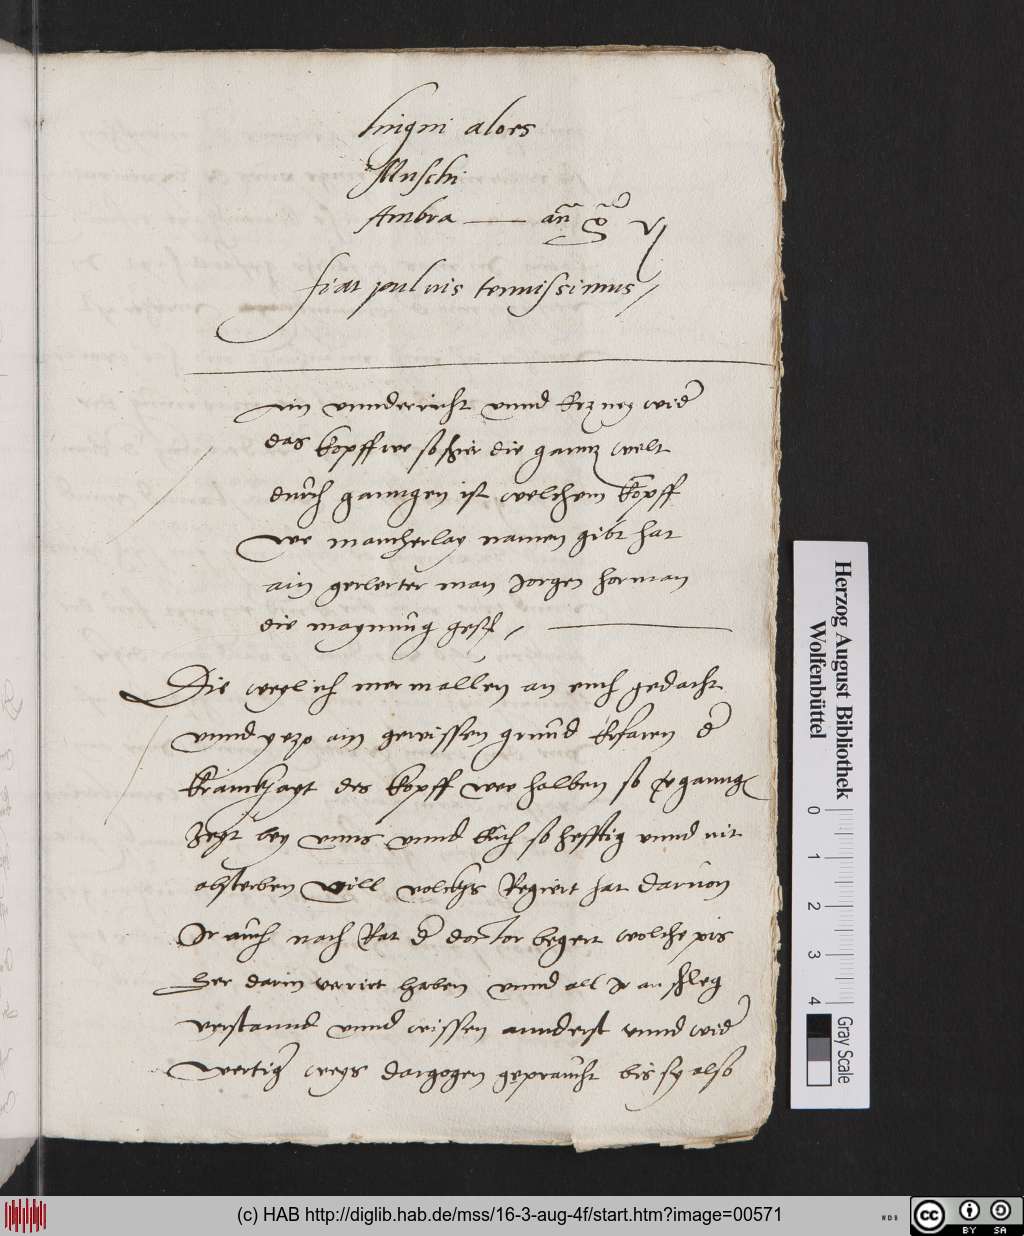 lingni aloes
Muschi
Ambra — añ g v
fiat puluis tenuissimus /
ain vnnderricht vnnd Erzney wid
das kopffwe so hier die gantz welt
durch ganngen ist welchem kopff
we mancherlay namen gibt hat
ain gerlerter man Jorgen horman
die maynung gest /
Die weylich mermallen an euch gedacht
vnnd yezo ain gewissen grund Erfaren d
kranckhayt des kopff wee halben so
yezt bey vnns vnnd Euch so hefftig vnnd nit
absterben will Regiert hat daruon
Ir auch nach Rat d doctor begert wolche pis
her darin verriet haben vnnd all Ir anschleg
verstannd vnnd wissen annderst vnnd wid
wertig weys dargogen gepraucht bis sy also
Herzog August Bibliothek
Wolfenbüttel
0 1 2 3 4
Gray Scale
(c) HAB http://diglib.hab.de/mss/16-3-aug-4f/start.htm?image=00571
WDB
CC BY SA